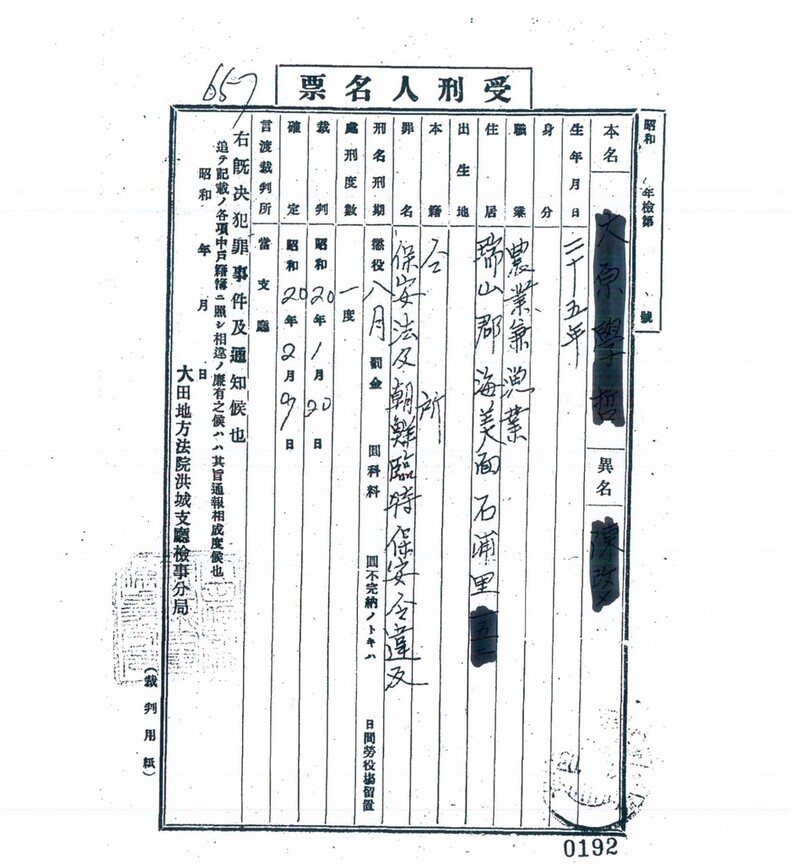 657
受刑人名票
昭和 年檢第 號
本名 異名
生年月日 二十五年
身分
職業 農業兼漁業
住居 瑞山郡海美面石浦里
出生地
本籍 仝所
罪名 保安法及朝鮮臨時保安令違反
刑名刑期 懲役八月 罰金 圓科料 圓不完納ノトキハ 日間勞役場留置
處刑度數 一度
裁判 昭和20年1月20日
確定 昭和20年2月9日
言渡裁判所 當支廳
右既決犯罪事件及通知候也
追テ記載ノ各項中戶籍簿ニ照シ相違ノ廉有之候ハハ其旨通報相成度候也
昭和 年 月 日
大田地方法院洪城支廳檢事分局
(裁判用紙)
0192